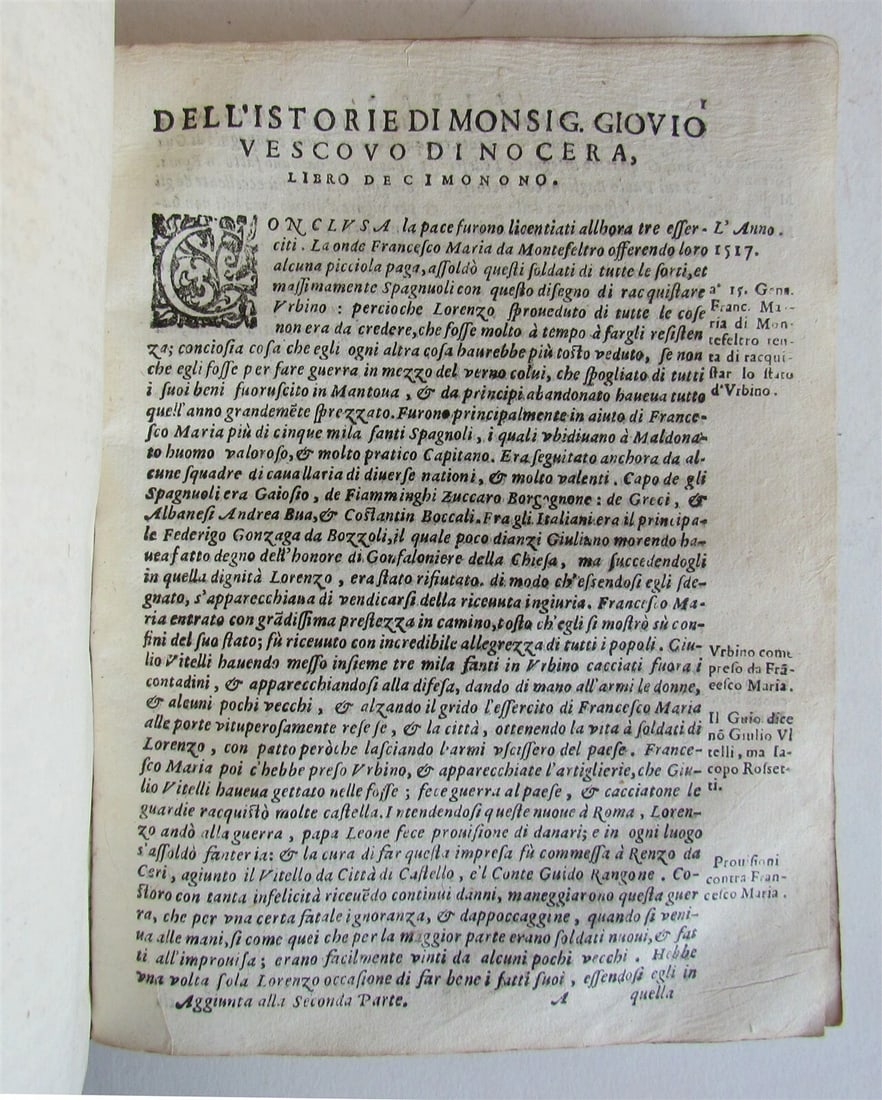 1
DELL'ISTORIE DI MONSIG. GIOVIO
VESCOVO DI NOCERA,
LIBRO DECIMONONO.
CONCLVSA la pace furono licentiati allhora tre esser-
citi. La onde Francesco Maria da Montefeltro offerendo loro
alcuna picciola paga, assoldò questi soldati di tutte le sorti, et
massimamente Spagnuoli con questo disegno di racquistare
Vrbino : percioche Lorenzo sproueduto di tutte le cose
non era da credere, che fosse molto à tempo à fargli resisten
za; conciosia cosa che egli ogni altra cosa haurebbe più tosto veduto, se non
che egli fosse per fare guerra in mezzo del verno colui, che spogliato di tutti
i suoi beni fuoruscito in Mantoua, & da principi abandonato haueua tutto
quell'anno grandemẽte sprezzato. Furono principalmente in aiuto di France-
sco Maria più di cinque mila fanti Spagnoli, i quali vbidiuano à Maldona-
to huomo valoroso, & molto pratico Capitano. Era seguitato anchora da al-
cune squadre di cauallaria di diuerse nationi, & molto valenti. Capo de gli
Spagnuoli era Gaiosio, de Fiamminghi Zuccaro Borgognone : de Greci, &
Albanesi Andrea Bua, & Costantin Boccali. Fra gli Italiani era il principa-
le Federigo Gonzaga da Bozzoli, il quale poco dianzi Giuliano morendo ha-
uea fatto degno dell'honore di Gonfaloniere della Chiesa, ma succedendogli
in quella dignità Lorenzo, era stato rifiutato. di modo ch'essendosi egli sde-
gnato, s'apparecchiaua di vendicarsi della riceuuta ingiuria. Francesco Ma-
ria entrato con grãdissima prestezza in camino, tosto ch'egli si mostrò sù con-
fini del suo stato; fù riceuuto con incredibile allegrezza di tutti i popoli. Giu-
lio Vitelli hauendo messo insieme tre mila fanti in Vrbino cacciati fuora i
contadini, & apparecchiandosi alla difesa, dando di mano all'armi le donne,
& alcuni pochi vecchi, & alzando il grido l'essercito di Francesco Maria
alle porte vituperosamente rese se, & la città, ottenendo la vita à soldati di
Lorenzo, con patto però che lasciando l'armi vscissero del paese. France-
sco Maria poi c'hebbe preso Vrbino, & apparecchiate l'artiglierie, che Giu-
lio Vitelli haueua gettato nelle fosse; fece guerra al paese, & cacciatone le
guardie racquistò molte castella. Intendendosi queste nuoue à Roma, Loren-
zo andò alla guerra, papa Leone fece prouisione di danari; e in ogni luogo
s'assoldò fanteria: & la cura di far questa impresa fù commessa à Renzo da
Ceri, agiunto il Vitello da Città di Castello, e'l Conte Guido Rangone. Co-
storo con tanta infelicità riceuẽdo continui danni, maneggiarono questa guer
ra, che per vna certa fatale ignoranza, & dappoccaggine, quando si veni-
ua alle mani, si come quei che per la maggior parte erano soldati nuoui, & fat
ti all'improuisa; erano facilmente vinti da alcuni pochi vecchi. Hebbe
vna volta sola Lorenzo occasione di far bene i fatti suoi, essendosi egli in
Aggiunta alla Seconda Parte. A quella
L'Anno.
1517.
a' 15. Genn.
Franc. Ma-
ria di Mon-
tefeltro ten-
ta di racqui-
star lo stato
d'Vrbino.
Vrbino come
preso da Frã-
cesco Maria.
Il Guio dice
nõ Giulio Vi
telli, ma Ia-
copo Rosset-
ti.
Prouisioni
contra Fran-
cesco Maria.